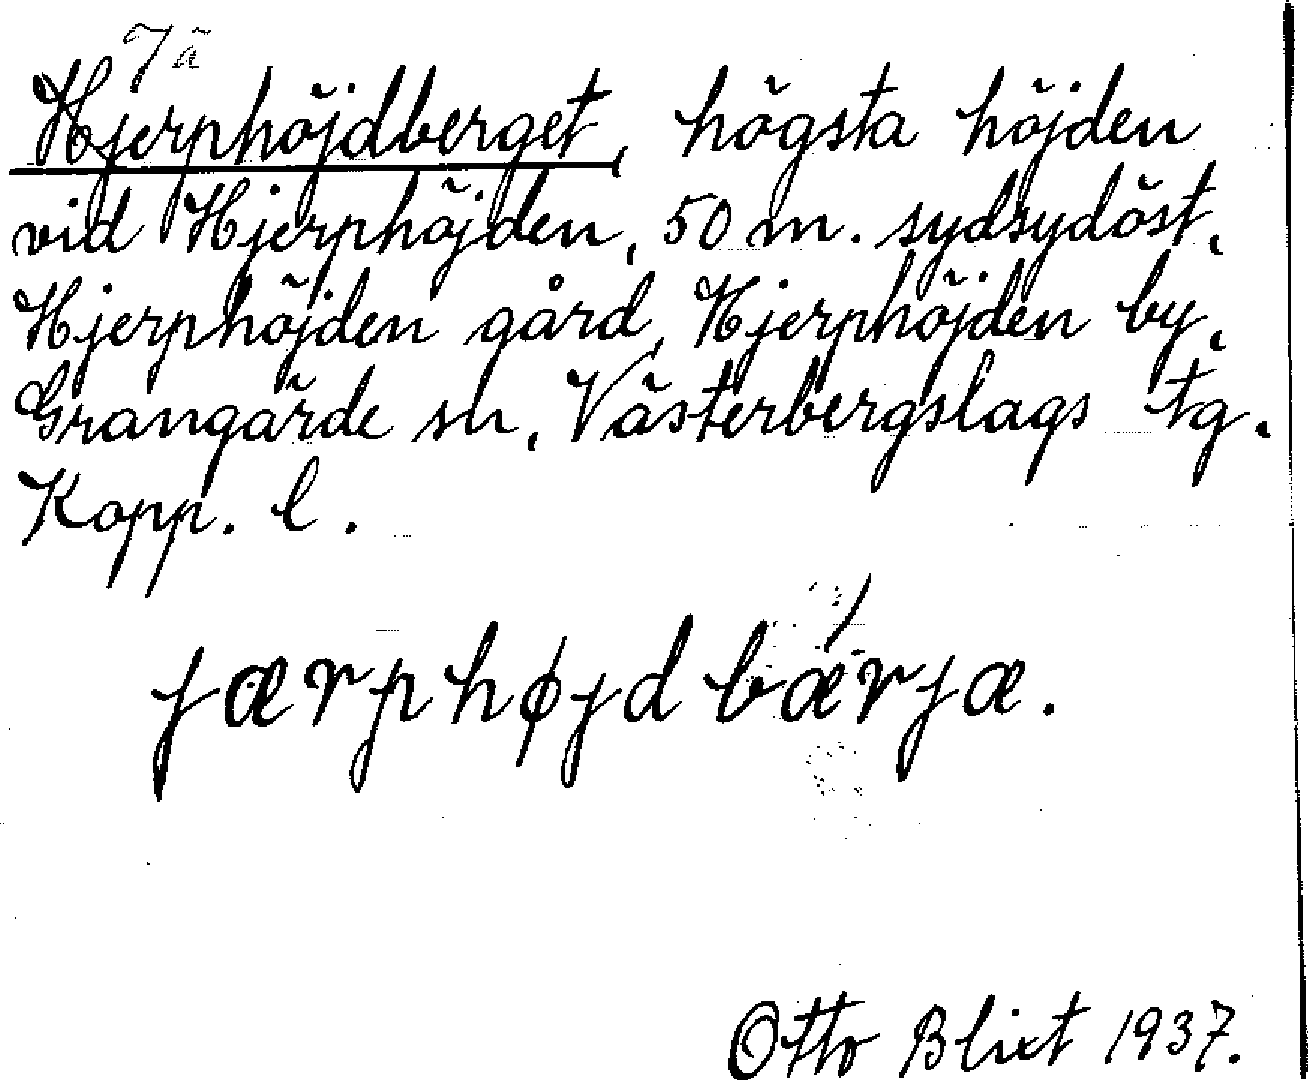 Jä
Hjerphöjdberget, högsta höjden
vid Hjerphöjden, 50 m. sydsydöst,
Hjerphöjden gård, Hjerphöjden by,
Grangärde sn, Västerbergslags tg.
Kopp. l.
jærphøjdbærjæ.
Otto Blixt 1937.